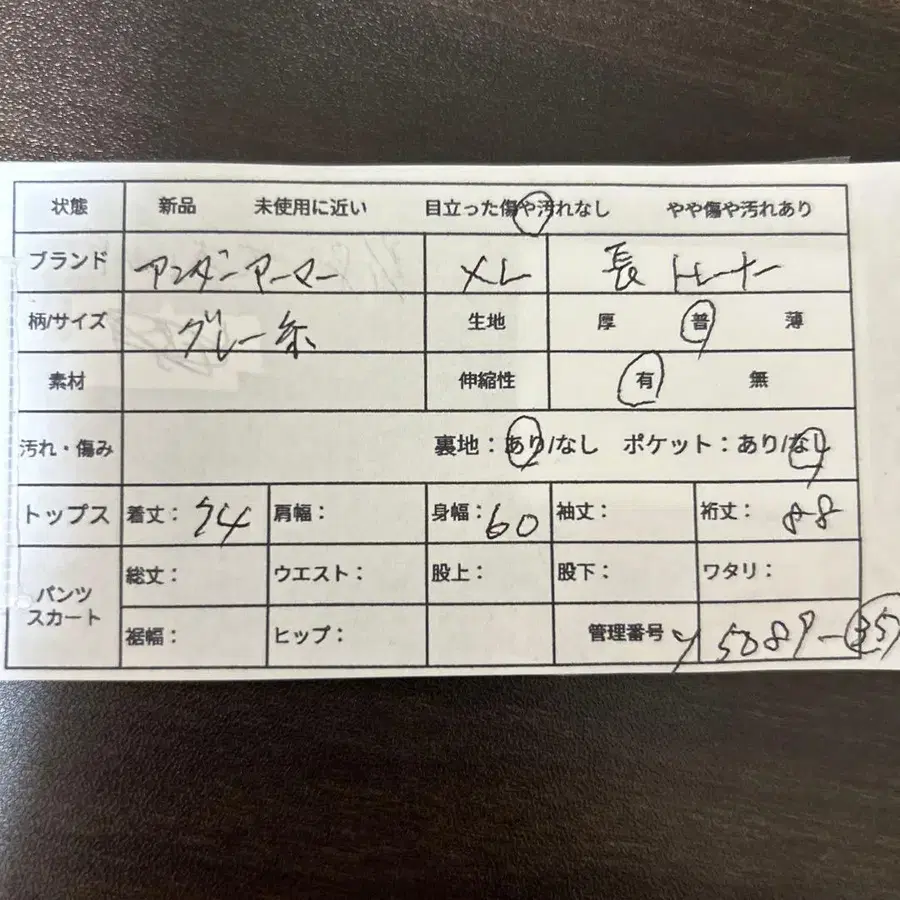 状態 新品 未使用に近い 目立った傷や汚れなし やや傷や汚れあり
ブランド アンダーアーマー XL 長トレーナー
柄/サイズ グレー系 生地 厚 普 薄
素材 伸縮性 有 無
汚れ・傷み 裏地：あり/なし ポケット：あり/なし
トップス 着丈： 74 肩幅： 身幅： 60 袖丈： 裄丈： 88
パンツ
スカート
総丈： ウエスト： 股上： 股下： ワタリ：
裾幅： ヒップ： 管理番号